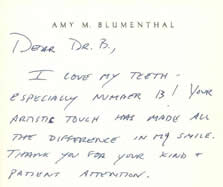 AMY M. BLUMENTHAL
DEAR DR. B.,
I LOVE MY TEETH -
ESPECIALLY NUMBER 13! YOUR
ARTISTIC TOUCH HAS MADE ALL
THE DIFFERENCE IN MY SMILE.
THANK YOU FOR YOUR KIND &
PATIENT ATTENTION.